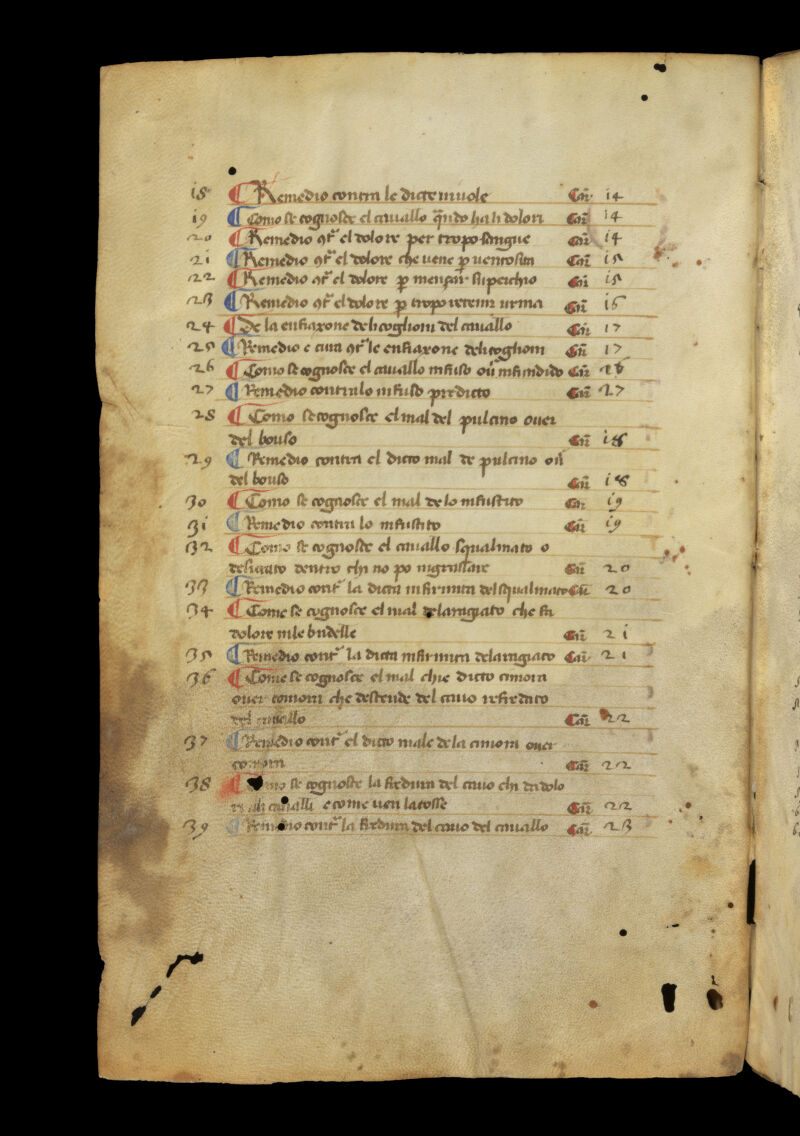 18 ¶ Remedio contra le dicte iniuole Car̄ 14
19 ¶ Como se cognosce el cauallo q̄ndo ha li dolori Car̄ 14
20 ¶ Remedio 9tͬ el dolore per tropo sangue car̄ 14
21 ¶ Remedio 9tͬ el dolore che uene ꝑ uentosita Car̄ 15
22 ¶ Remedio 9tͬ el dolore ꝑ mençar superchio Car̄ 15
23 ¶ Remedio 9tͬ el dolore ꝑ tropo retenir urina Car̄ 16
24 ¶ De la enfiaxone de li coglioni del cauallo Car̄ 17
25 ¶ Remedio e cura 9tͬ le enfiaxone deli coglioni Car̄ 17
26 ¶ Como se cognosce el cauallo infuso ou̅ infundido Car̄
27 ¶ Remedio contra lo infuso predicto Car̄ 27
28 ¶ Como se cognosce el mal del pulcino ouer
del bouso Car̄ 18
29 ¶ Remedio contra el dicto mal de pulcino ou̅
del bouso Car̄ 18
30 ¶ Como se cognosce el mal de lo infustito Car̄ 19
31 ¶ Remedio contra lo infustito Car̄ 19
32 ¶ Como se cognosce el cauallo squalmato o
desicato dentro chi no po ingrassare Car̄ 20
33 ¶ Remedio contͬ la dicta infirmita del squalmato Car̄ 20
34 ¶ Come se cognosce el mal delaragiato che fa
dolore in le budelle Car̄ 21
35 ¶ Remedio contͬ la dicta infirmita delaragiato Car̄ 21
36 ¶ Come se cognosce el mal chue dicto cimora
ouer comora che descende del cauo refredato
del cauallo Car̄ 22
37 ¶ Remedio contͬ el dicto male de la cimora ouer
comora car̄ 22
38 ¶ Como se cognosce la fredura del cauo chi da dolo
re ali caualli e come uen la tosse Car̄ 22
39 ¶ Remedio contͬ la fredura del cauo del cauallo Car̄ 23